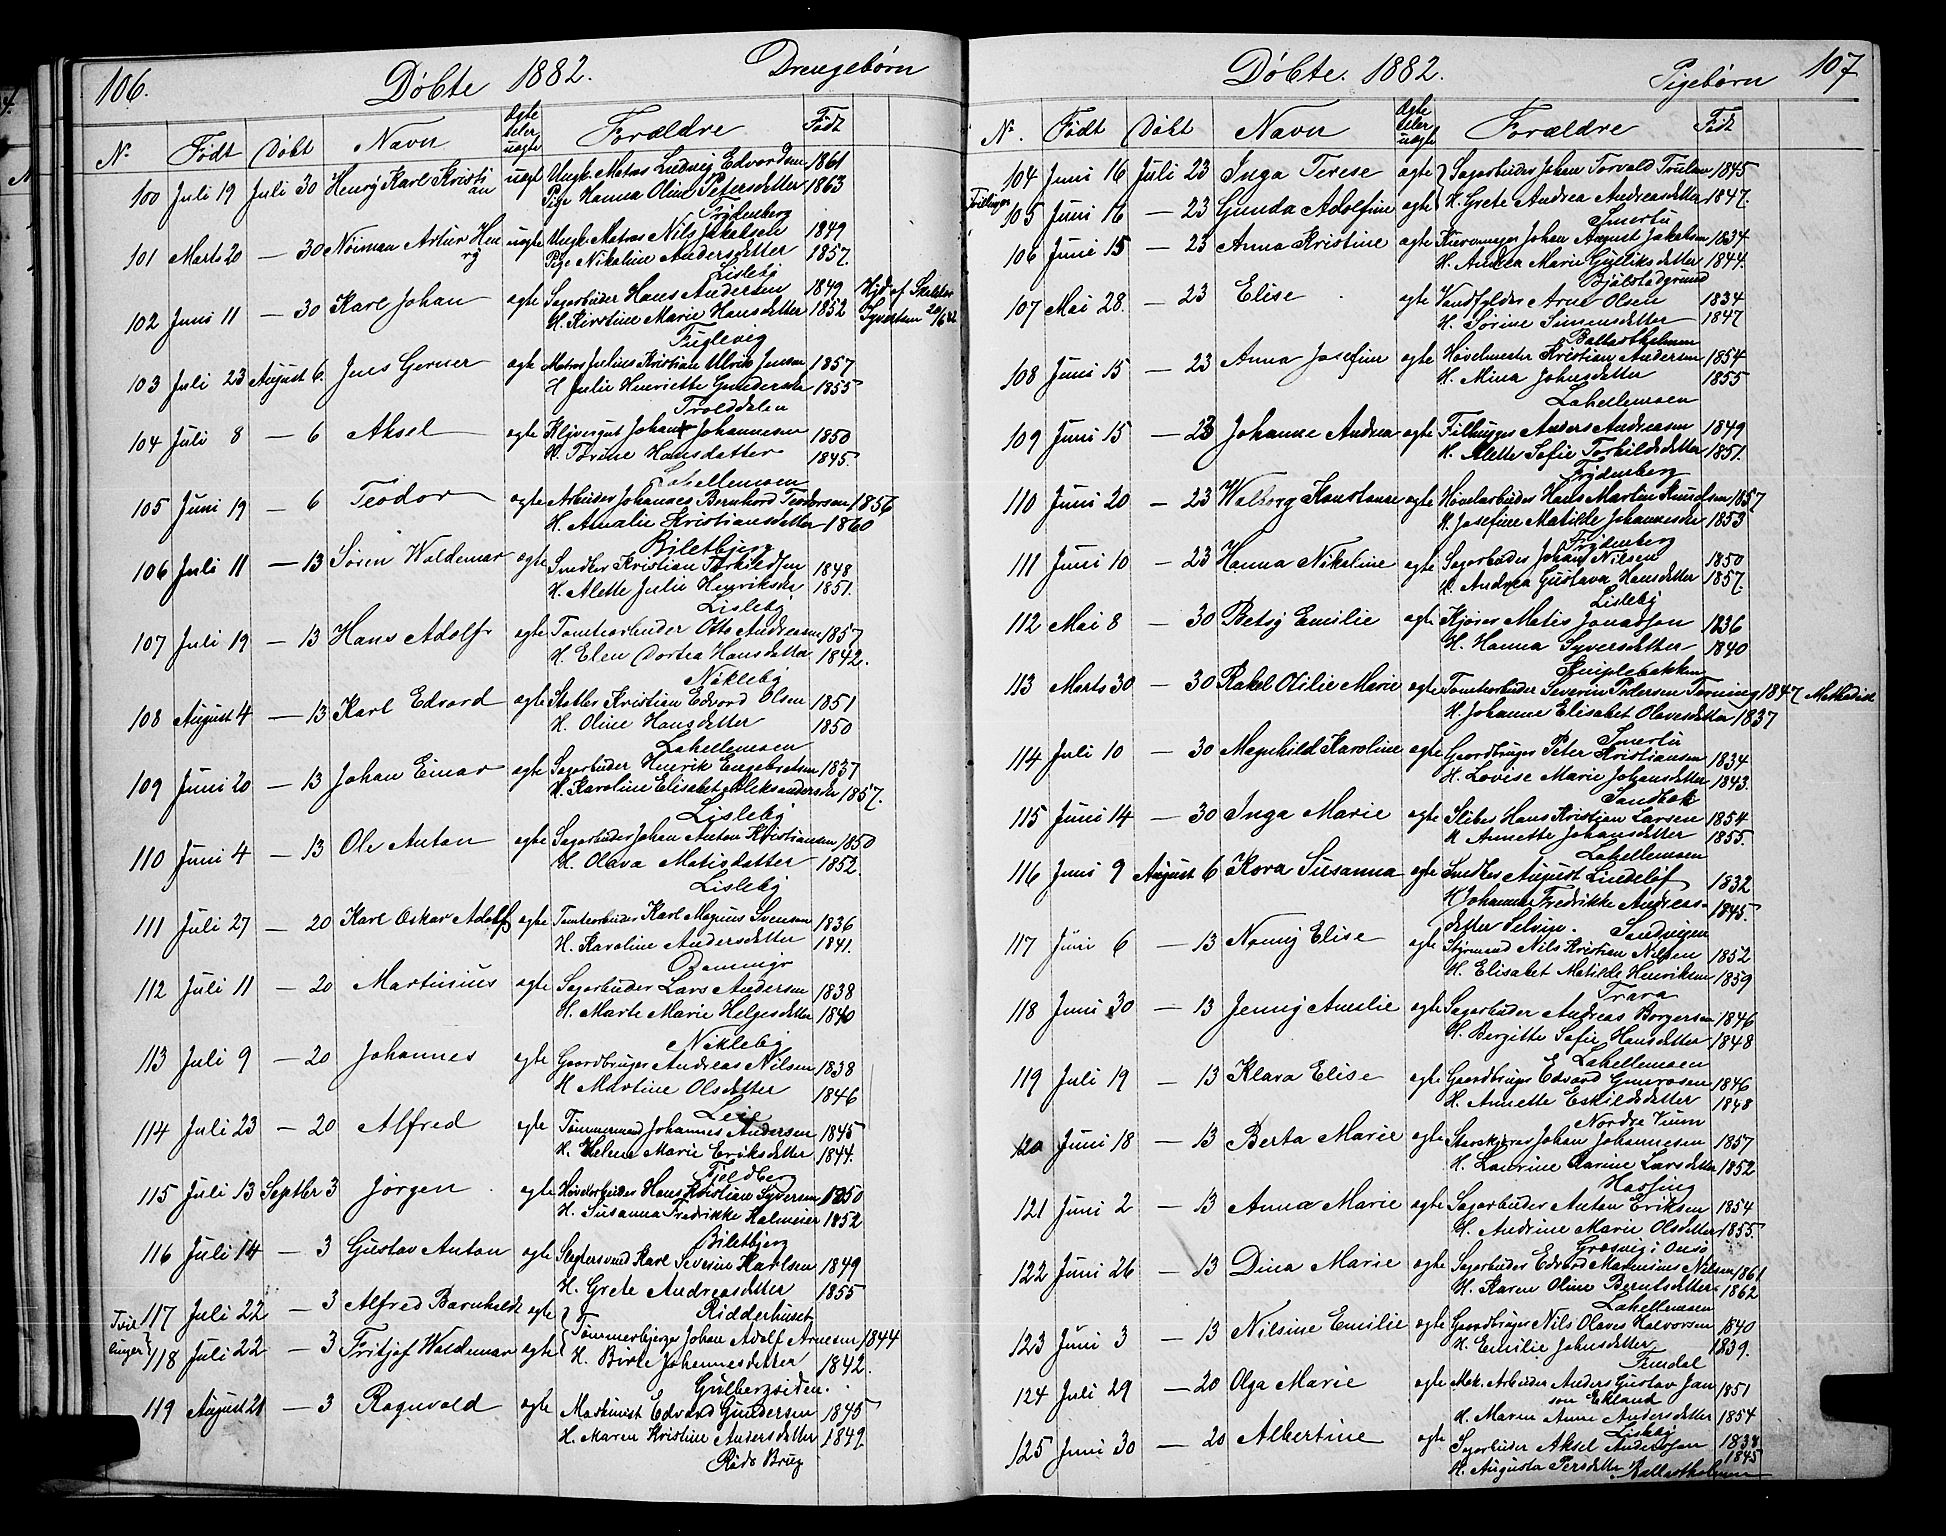 106.
Døbte 1882.
Drengebørn
N.
Født
Døbt
Navn
Ægte eller uægte
Forældre
Født
100 Juli 19 Juli 30 Henry Karl Kristian uægt Ungk. Matros Ludvig Edvardsen 1861
Pige Hanna Oline Petersdetter 1863
Trydenberg
101 Marts 20 — 30 Norman Artur Henry uægte Ungk. Matros Nils Jakobsen 1849
Pige Nikoline Andersdetter 1857.
Lisleby
102 Juni 11 — 30 Karl Johan ægte Sagarbeider Hans Andersen 1849 Hjd. af Skolelær
H. Kirstine Marie Hansdetter 1852 Syvertsen 20/6 82
Fuglevig
103 Juli 23 August 6. Jens Gerner ægte Matros Julius Kristian Ulrik Jensen 1857
H. Julie Henriette Gundersen 1855
Trolddalen
104 Juli 8 — 6 Aksel ægte Johan Johannesen 1850
H. Torine Hansdatter 1845.
Lahellemoen
105 Juni 19 — 6 Teodor ægte Arbeider Johannes Bernhard Teodorsen 1856
H. Amalie Kristiansdetter 1860
Biletbjerg
106 Juli 11 — 13 Søren Waldemar ægte Snedker Kristian Torkildsen 1848
H. Alette Julie Henriksen 1851.
Lisleby
107 Juli 19 — 13 Hans Adolf ægte Tomtearbeider Otto Andersen 1857
H. Elen Dortea Hansdetter 1842.
Nøkleby
108 August 4 — 13 Karl Edvard ægte Stabler Kristian Edvard Olsen 1851
H. Oline Hansdetter 1850
Lahellemoen
109 Juni 20 — 13 Johan Einar ægte Sagarbeider Henrik Engebretsen 1837
H. Karoline Elisabet Aleksandersen 1857.
Lisleby
110 Juni 4 — 13 Ole Anton ægte Sagarbeider Johan Anton Kristiansen 1850
H. Olava Matisdatter 1852.
Lisleby
111 Juli 27 — 20 Karl Oskar Adolf ægte Tomtearbeider Karl Magnus Svensen 1836
H. Karoline Andersdetter 1841.
Damningr
112 Juli 11 — 20 Martinius ægte Sagarbeider Lars Andersen 1838
H. Marte Marie Helgesdetter 1840
Nøkleby
113 Juli 9 — 20 Johannes ægte Gaardbruger Andreas Nilsen 1838
H. Martine Olsdetter 1846
Leie
114 Juli 23 — 20 Alfred ægte Tømmermand Johannes Andersen 1845
H. Helene Marie Eriksdetter 1844.
Fjeldberg
115 Juli 13 Septbr 3 Jørgen ægte Høvelarbeider Hans Kristian Syversen 1850
H. Susanna Fredrikke Halmeier 1852
Biletbjerg
116 Juli 14 — 3 Gustav Anton ægte Slagtersvend Karl Severin Karlsen 1849
H. Grete Andreasdetter 1855
Ridderhuset
Tvillinger 117 Juli 22 — 3 Alfred Barnholdt ægte
118 Juli 22 — 3 Fritjof Waldemar ægte Tømmerbjerger Johan Adolf Arnesen 1844
H. Birte Johannesdetter 1842.
Gulbergsiden.
119 August 21 — 3 Ragnvald ægte Maskinist Edvard Gundersen 1845
H. Maren Kristine Andersdetter 1849
Røds Brug
107
Døbte. 1882.
Pigebørn
N.
Født
Døbt
Navn
Ægte eller uægte
Forældre
Født
Tvillinger 104 Juni 16 Juli 23 Inga Terese ægte Sagarbeider Johan Torvald Trulsen 1845
105 Juni 16 — 23 Gunda Adolfine ægte H. Grete Andrea Andreasdetter 1847.
Smertu
106 Juni 15 — 23 Anna Kristine ægte Johan August Jakobsen 1834
H. Andrea Marie Gulliksdetter 1844.
Bjølstadgrund
107 Mai 28. — 23 Elise ægte Vandfylder Arne Olsen 1834
H. Sørine Simensdetter 1847
Ballastholmen
108 Juni 15 — 23 Anna Josefine ægte Høvelmester Kristian Andersen 1854
H. Mina Johnsdetter 1855
Lahellemoen
109 Juni 15 — 23 Johanne Andrea ægte Filhugger Anders Andreasen 1849
H. Alette Sofie Torkildsdetter 1851.
Trydenberg
110 Juni 20 — 23 Walborg Konstanse ægte Høvelarbeider Hans Martin Knudsen 1857
H. Josefine Matilde Johannesen 1853
Trydenberg
111 Juni 10 — 23 Hanna Nikoline ægte Sagarbeider Johan Nilsen 1850
H. Andrea Gustava Hansdetter 1857.
Lisleby
112 Mai 8 — 30 Betsy Emilie ægte Kjører Matis Jonassen 1836
H. Hanna Syversdetter 1840
Simplebakken
113 Marts 30 — 30 Rakel Otilie Marie ægte Tomtearbeider Severin Pedersen Torning 1847 Methodist
H. Johanne Elisabet Olavesdetter 1837
Smertu
114 Juli 10 — 30 Magnhild Karoline ægte Gaardbruger Peter Kristiansen 1834
H. Lovise Marie Johansdetter 1843.
Sandbæk
115 Juni 14 — 30 Inga Marie ægte Sliber Hans Kristian Larsen 1854
H. Annette Johansdetter 1855.
Lahellemoen
116 Juni 9 August 6 Kora Susanna ægte Snedker August Lindeløf 1832
H. Johanne Fredrikke Andreas- 1845.
detter Selvin. Sandvigen
117 Juni 6 — 13 Nanny Elise ægte Styrmand Nils Kristian Nilsen 1852
H. Elisabet Matilde Henriksen 1859
Trara
118 Juni 30 — 13 Jenny Amilie ægte Sagarbeider Andreas Borgersen 1846
H. Bergitte Sofie Hansdetter 1848
Lahellemoen
119 Juli 19 — 13 Klara Elise ægte Gaardbruger Edvard Gunrosen 1846
H. Annette Eskildsdetter 1848
Nordre Kium
120 Juni 18 — 13 Berta Marie ægte Johan Johannesen 1857
H. Laurine Karine Larsdetter 1852.
Hassing
121 Juni 2 — 13 Anna Marie ægte Sagarbeider Anton Eriksen 1854
H. Andrine Marie Olsdetter 1855.
Græsvig i Onsø
122 Juni 26 — 13 Dina Marie ægte Sagarbeider Edvard Marensius Nilsen 1861
H. Karen Oline Berntsdetter 1862
Lahellemoen
123 Juni 3 — 13 Nilsine Emilie ægte Gaardbruger Nils Olaves Halvorsen 1840
H. Emilie Johnsdetter 1839.
Femdal
124 Juli 29 — 20 Olga Marie ægte Mek. Arbeider Anders Gustav Jan 1851
son Eklund
H. Maren Anne Andersdetter 1854
Lisleby
125 Juni 30 — 20 Albertine ægte Sagarbeider Aksel Andersen 1834
H. Augusta Persdetter 1845
Ballastholmen